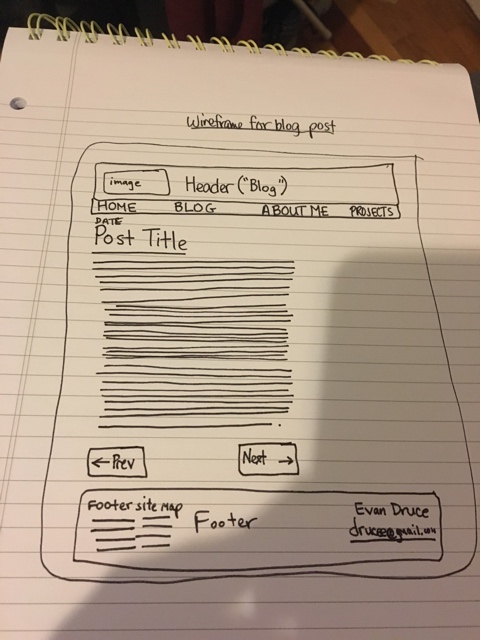 Wireframe for blog post
image
Header ("Blog")
HOME BLOG ABOUT ME PROJECTS
DATE
Post Title
← Prev
Next →
Footer site Map
Footer
Evan Druce